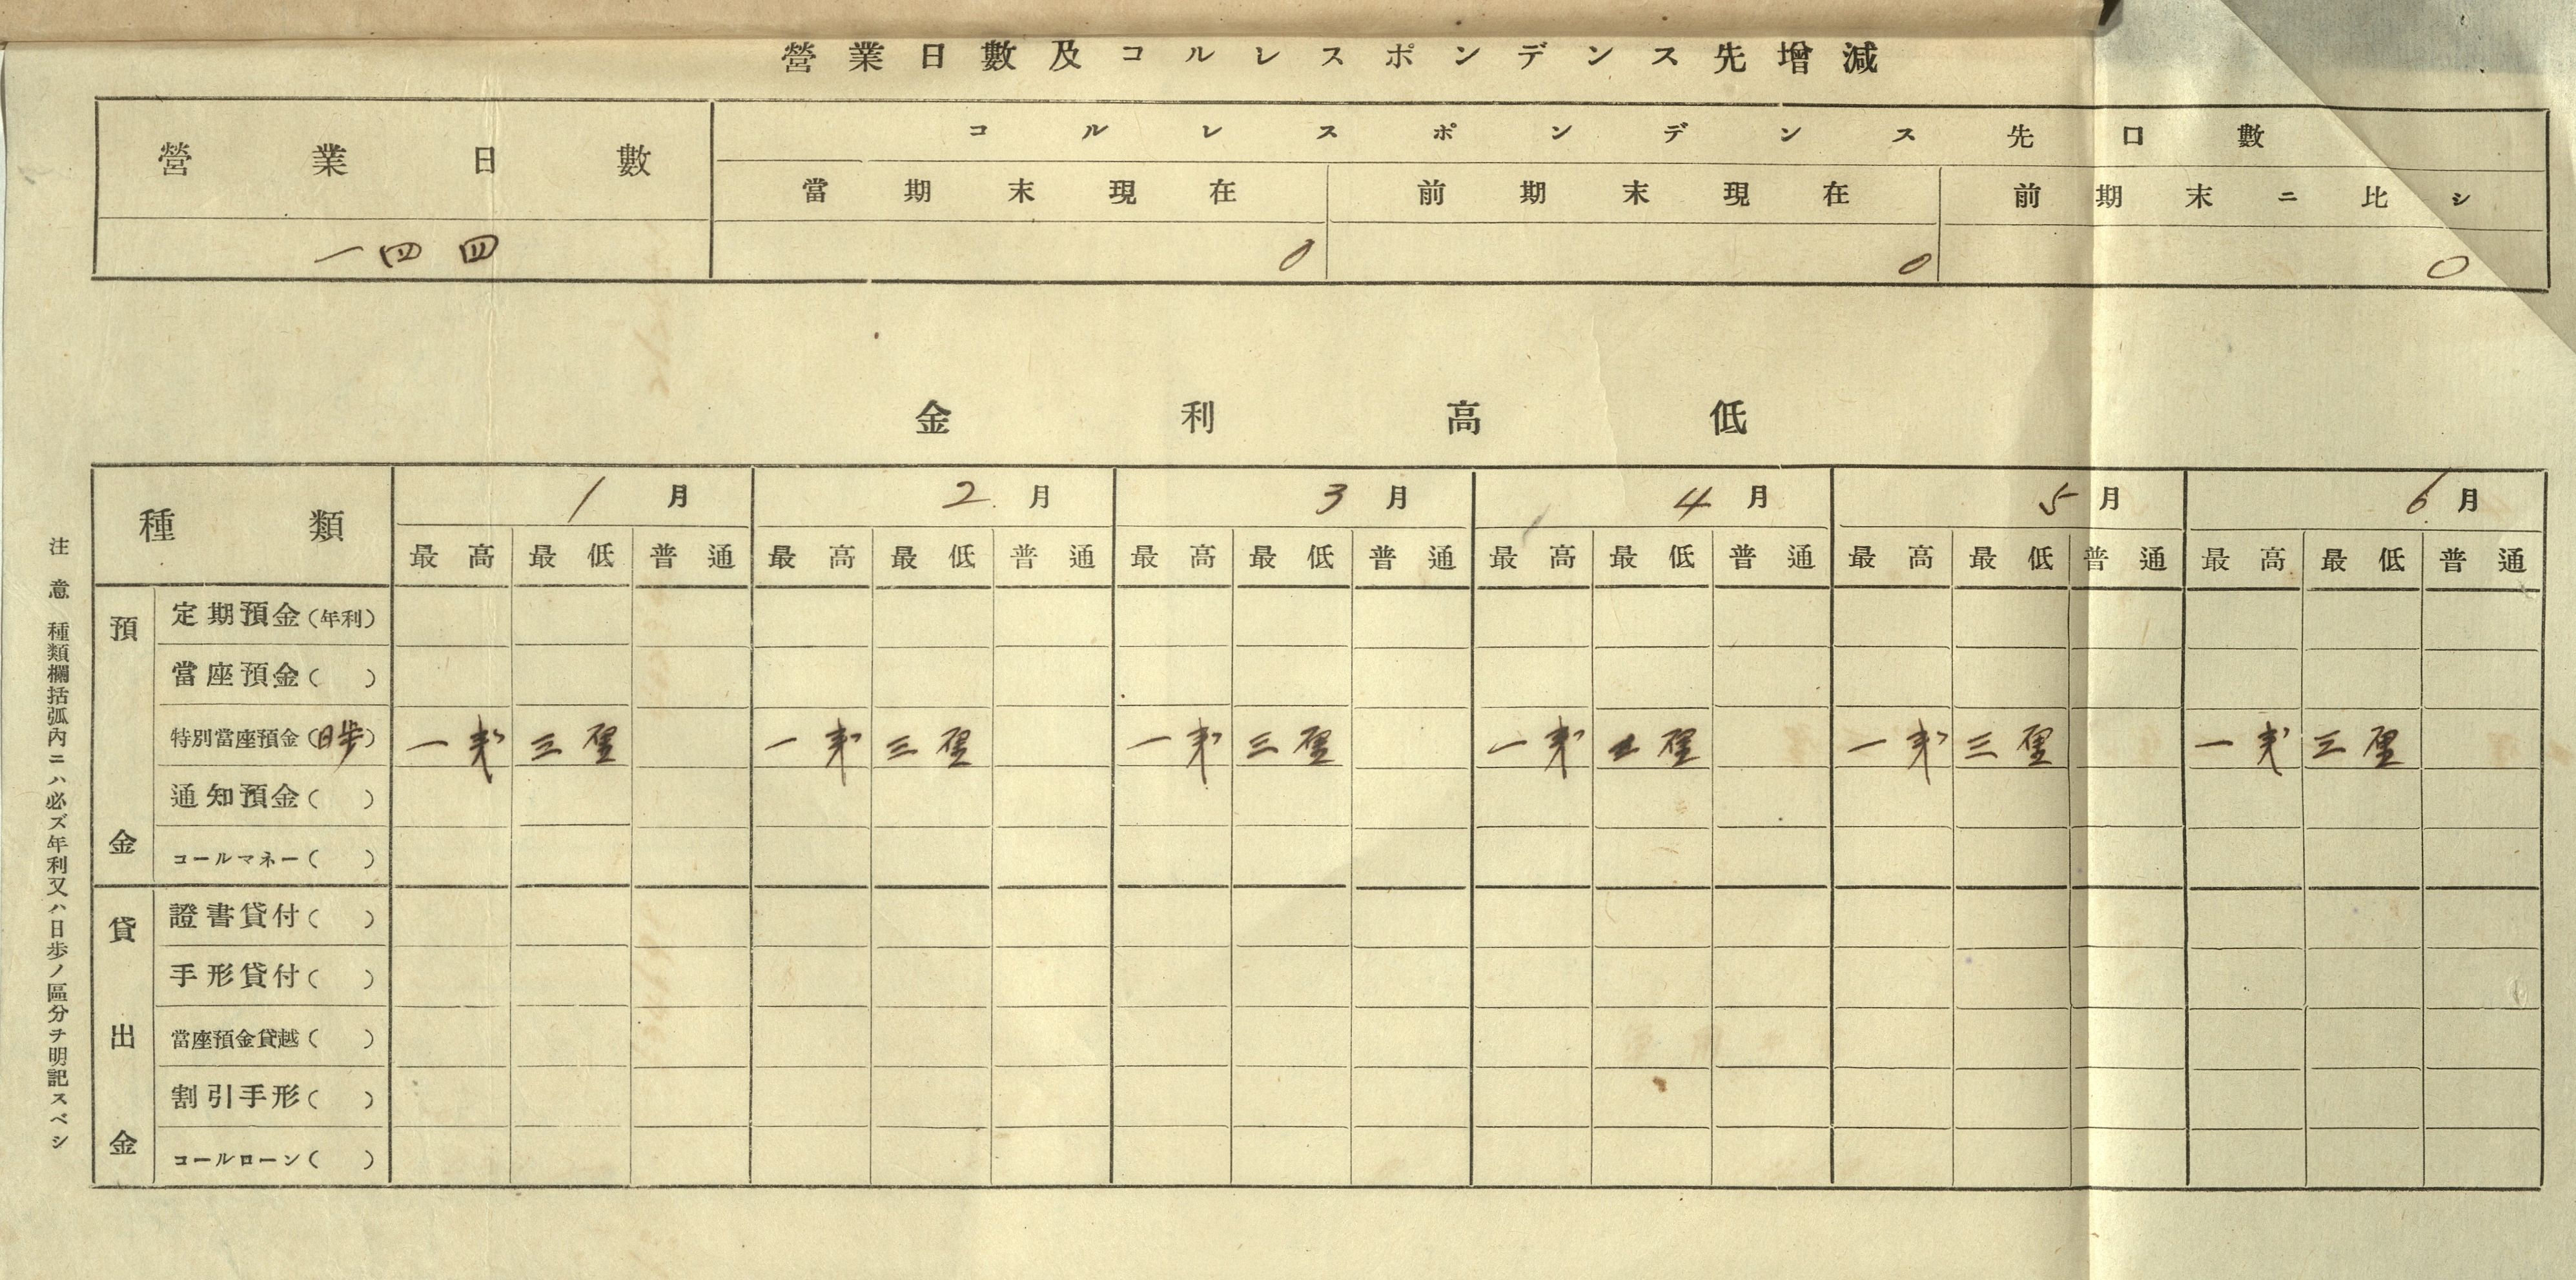 營業日數及コルレスポンデンス先增減
營業日數
コルレスポンデンス先口數
當期末現在 前期末現在 前期末ニ比シ
一四四 0 0 0
金利高低
種類 1月 2月 3月 4月 5月 6月
最高 最低 普通 最高 最低 普通 最高 最低 普通 最高 最低 普通 最高 最低 普通 最高 最低 普通
預金
定期預金(年利)
當座預金( )
特別當座預金(日歩) 一 三厘 一 三厘 一 三厘 一 厘 一 三厘 一 三厘
通知預金( )
コールマネー( )
貸出金
證書貸付( )
手形貸付( )
當座預金貸越( )
割引手形( )
コールローン( )
注意 種類欄括弧內ニハ必ズ年利又ハ日歩ノ區分ヲ明記スベシ